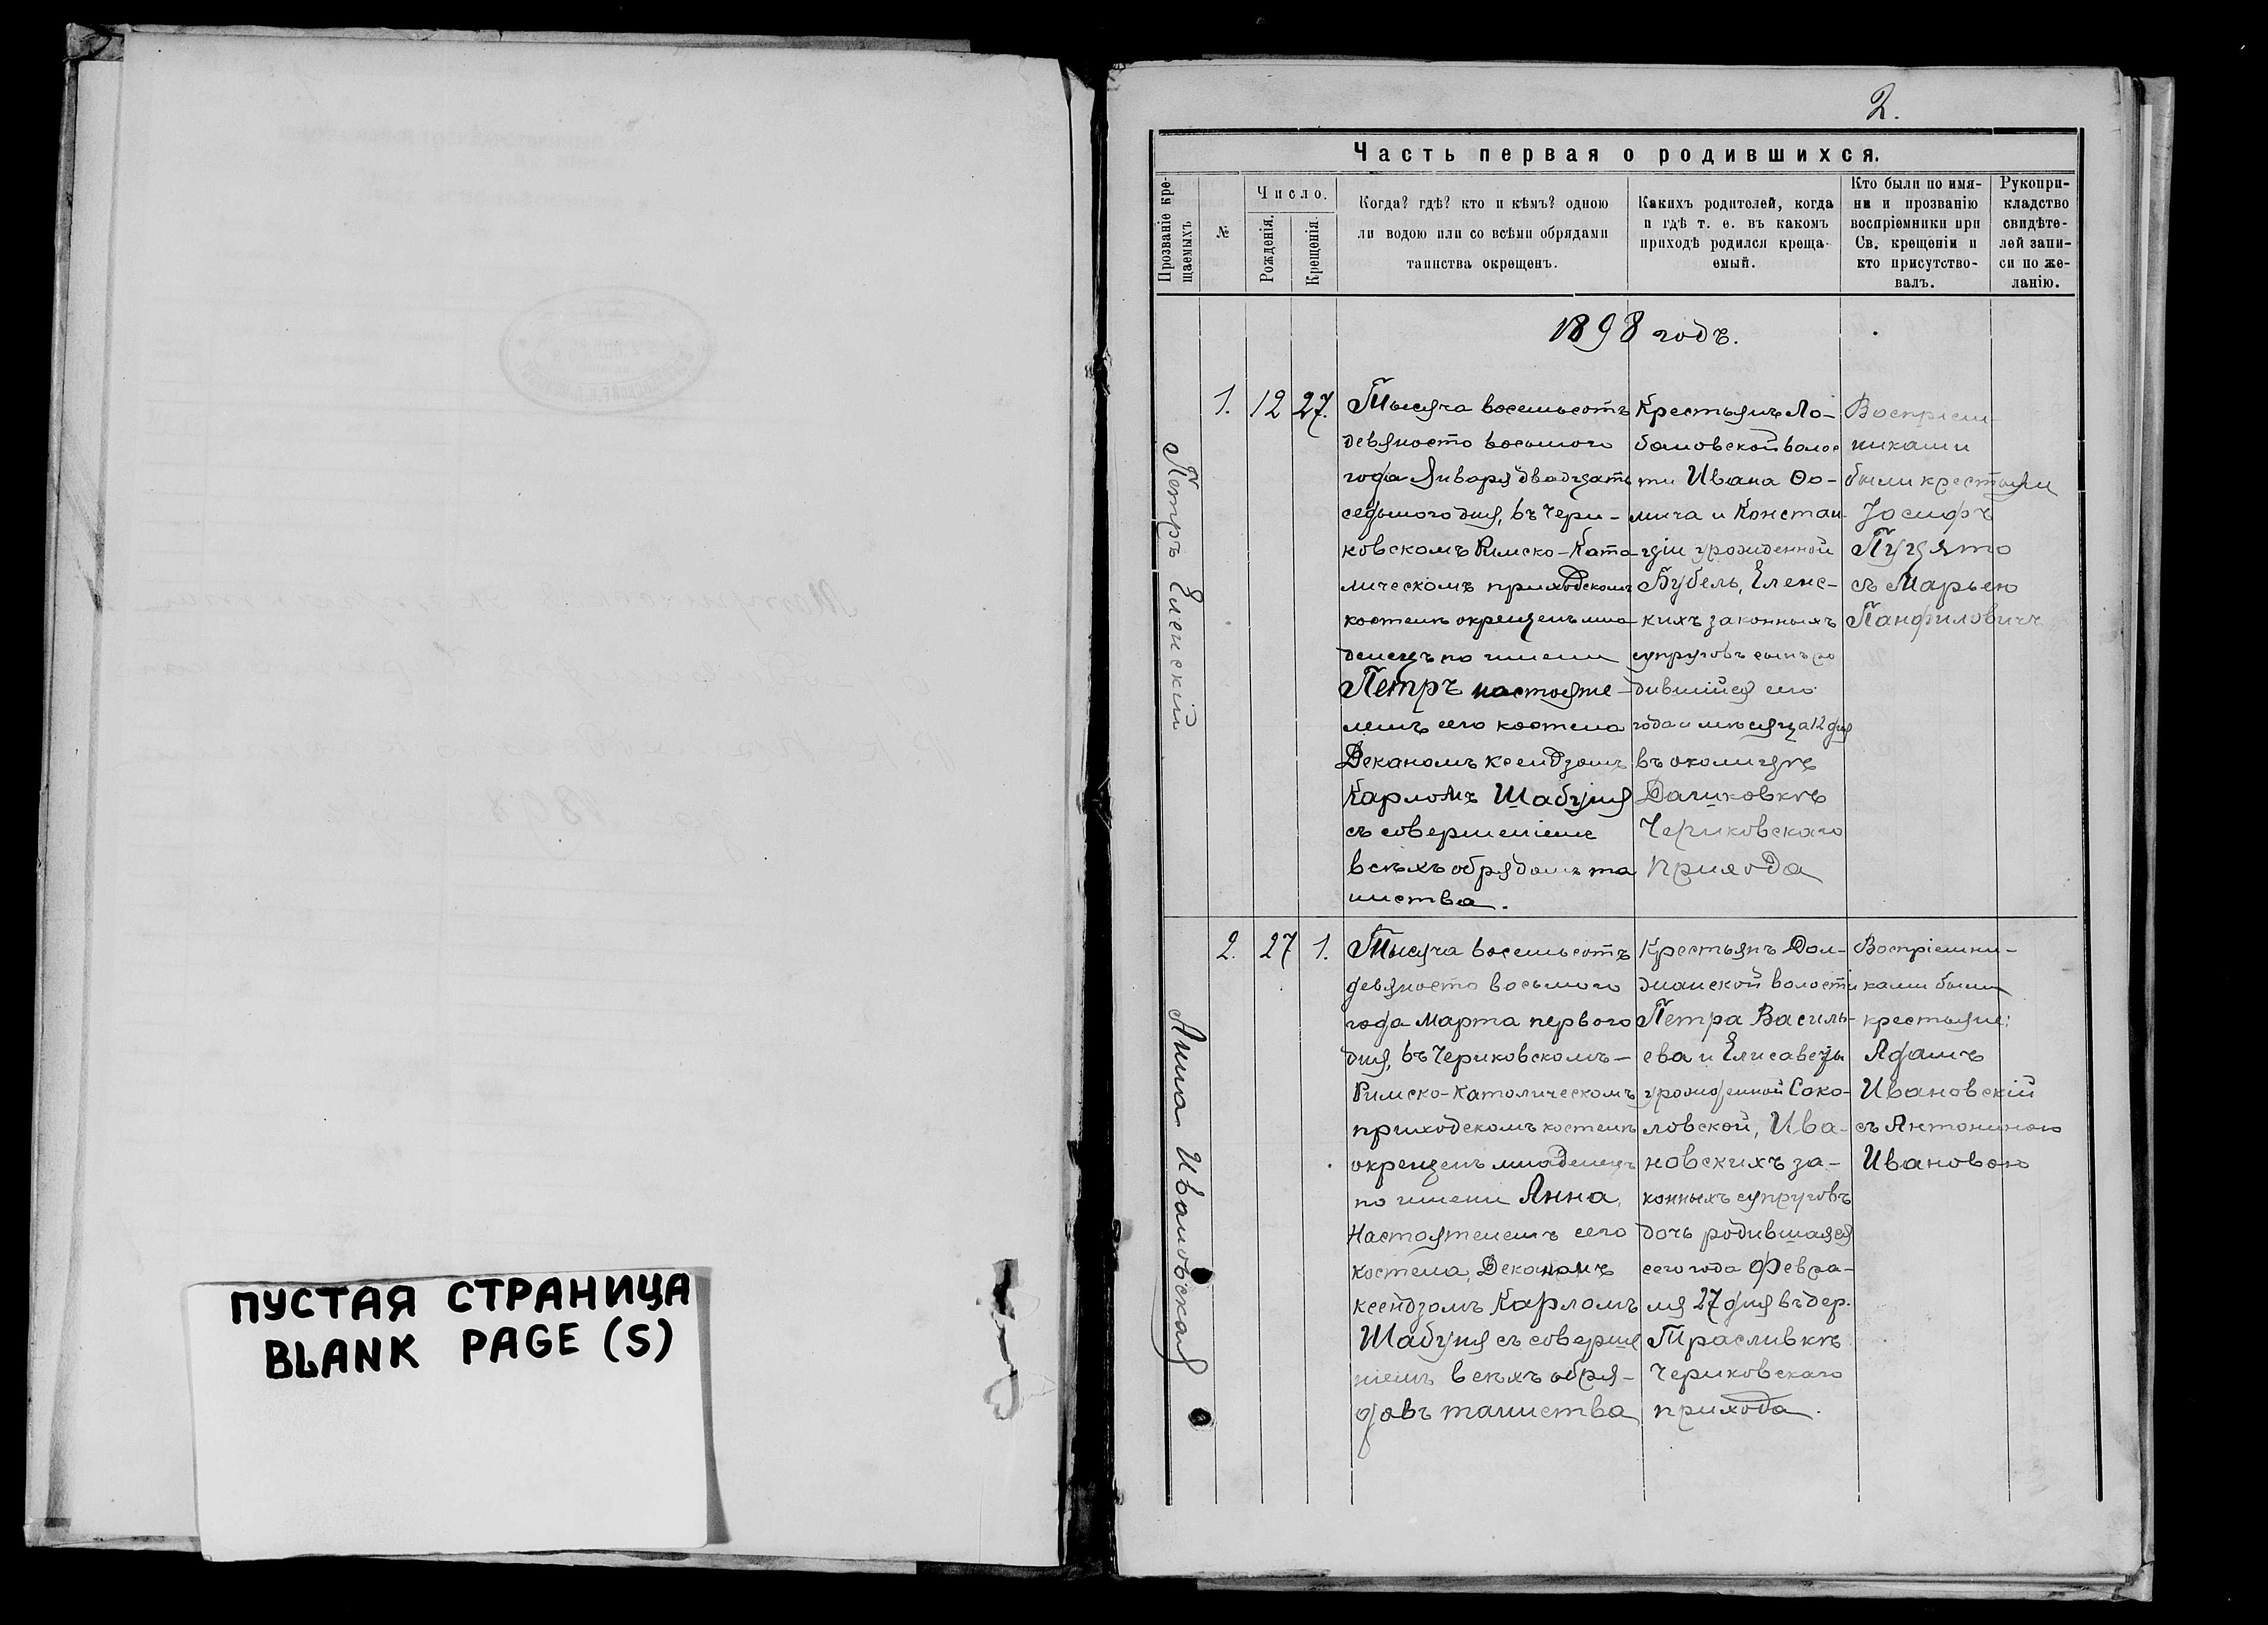 ПУСТАЯ СТРАНИЦА
BLANK PAGE (S)
2.
Часть первая о родившихся.
Прозваніе кре-
щаемыхъ
№
Число.
Рожденія.
Крещенія.
Когда? гдѣ? кто и кѣмъ? одною
ли водою или со всѣми обрядами
таинства окрещенъ.
Какихъ родителей, когда
и гдѣ т. е. въ какомъ
приходѣ родился креща-
емый.
Кто были по имя-
ни и прозванію
воспріемники при
Св. крещеніи и
кто присутство-
валъ.
Рукопри-
кладство
свидѣте-
лей запи-
си по же-
ланію.
1898 годъ.
Петръ Еленскій
1.
12
27.
Тысяча восемьсотъ
девяносто восьмого
года Января двадцать
седьмого дня, въ Чери-
ковскомъ Римско-Като-
лическомъ приходскомъ
костелѣ окрещенъ мла
денецъ по имени
Петръ настояте-
лемъ сего костела
Деканомъ ксендзомъ
Карломъ Шабуня
съ совершеніемъ
всѣхъ обрядовъ та
инства.
Крестьянъ Ло-
бановской волос
ти Ивана Ѳо-
мича и Констан-
ціи урожденной
Бубель, Еленс-
кихъ законныхъ
супруговъ сынъ ро
дившійся сего
года и мѣсяца 12 дня
въ околицѣ
Дашковкѣ
Чериковскаго
прихода
Воспріем
никами
были крестьяне
Іосифъ
Пуцято
съ Марьею
Панфиловичъ
Анна Ивановская
2.
27
1.
Тысяча восемьсотъ
девяносто восьмого
года Марта первого
дня, въ Чериковскомъ-
Римско-Католическомъ
приходскомъ костелѣ
окрещенъ младенецъ
по имени Анна,
Настоятелемъ сего
костела, Деканомъ
ксендзомъ Карломъ
Шабуня съ соверше
ніемъ всѣхъ обря-
довъ таинства
Крестьянъ Дол-
жанской волости
Петра Василь-
ева и Елисаветы
урожденной Соко-
ловской, Ива-
новскихъ за-
конныхъ супруговъ
дочь родившаяся
сего года Февра-
ля 27 дня въ дер.
Трасливкѣ
Чериковскаго
прихода.
Воспріемни-
ками были
крестьяне:
Адамъ
Ивановскій
съ Антониною
Ивановою